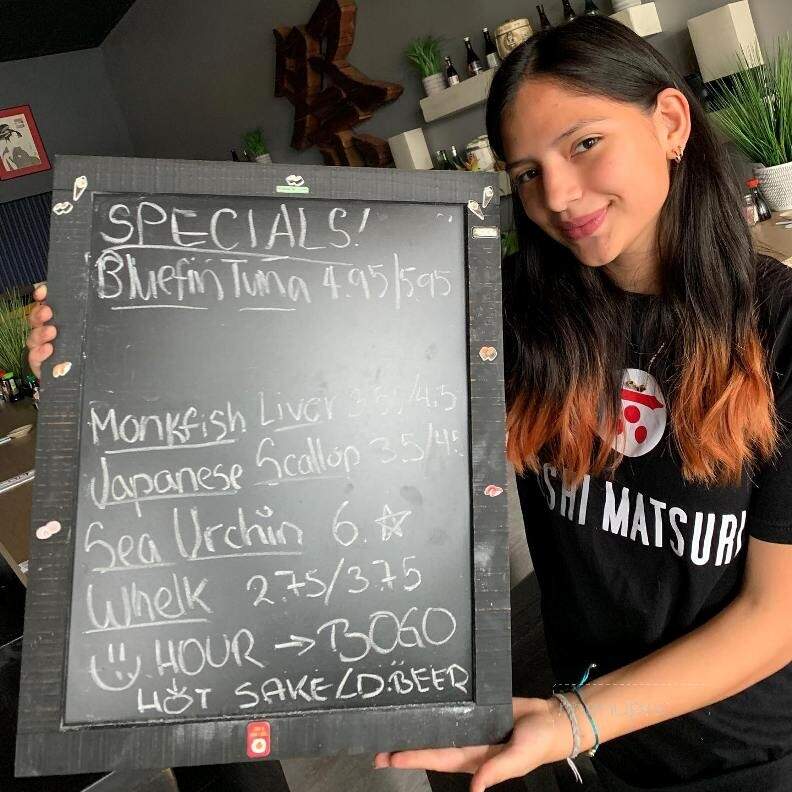 SPECIALS!
Bluefin Tuna 4.95/5.95
Monkfish Liver
Japanese Scallop 3.5/4.5
Sea Urchin 6.
Whelk 2.75/3.75
HOUR → BOGO
HOT SAKE/D.BEER
SHI MATSURI